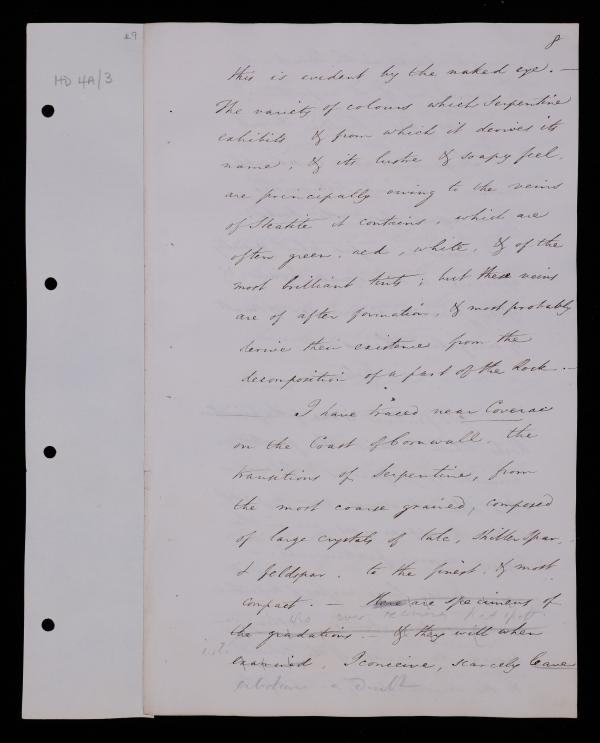 29
HD 4A/3
8
this is evident by the naked eye. —
The variety of colours which Serpentine
exhibits & from which it derives its
name, & its lustre & soapy feel,
are principally owing to the veins
of Steatite it contains, which are
often green, red, white, & of the
most brilliant tints; but these veins
are of after formation, & most probably
derive their existence from the
decomposition of a part of the Rock. —
I have traced near Coverac
on the Coast of Cornwall, the
transitions of Serpentine, from
the most coarse grained, composed
of large crystals of talc, Shiller Spar,
& feldspar, to the finest, & most
compact. — Here are specimens of
the gradations. — & they will when
examined, I conceive, scarcely leave
a doubt